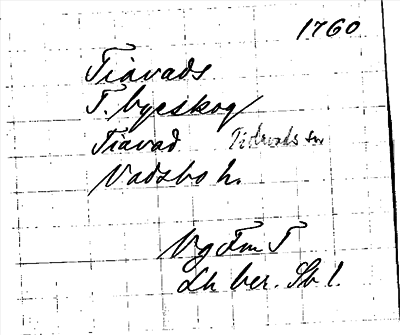 1760
Tiavads
T. byeskog
Tiavad Tidavads sn
Vadsbo h.
Vg Fm T
Lh ber. Sb l.